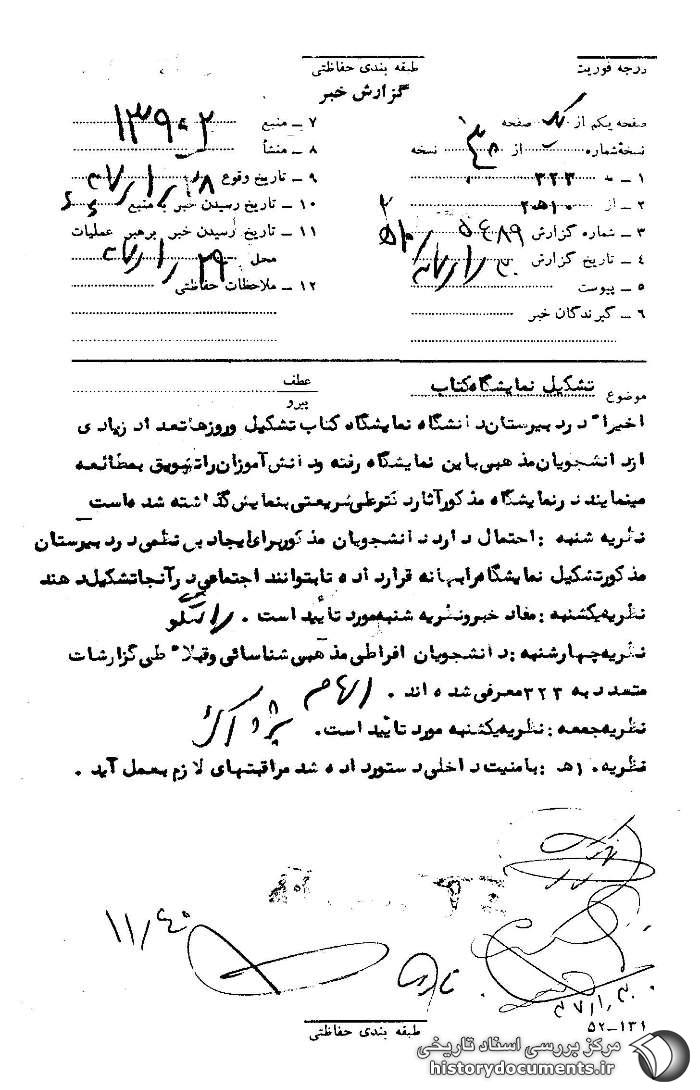 درجه فوریت
طبقه بندی حفاظتی
گزارش خبر
صفحه یکم از یک صفحه
نسخهٔ شماره از نسخه
۱ ـ به ۳۲۳
۲ ـ از ۲۰ ه‍ ۱۰
۳ ـ شماره گزارش
۴ ـ تاریخ گزارش
۵ ـ پیوست
۶ ـ گیرندگان خبر
۷ ـ منبع ۱۳۹۰۲
۸ ـ منشأ
۹ ـ تاریخ وقوع
۱۰ ـ تاریخ رسیدن خبر به منبع
۱۱ ـ تاریخ رسیدن خبر برهبر عملیات
محل
۱۲ ـ ملاحظات حفاظتی
موضوع تشکیل نمایشگاه کتاب
عطف
پیرو
اخیرا" در دبیرستان دانشگاه نمایشگاه کتاب تشکیل و روزها تعداد زیادی
از دانشجویان مذهبی باین نمایشگاه رفته و دانش آموزان را تشویق بمطالعه
مینمایند در نمایشگاه مذکور آثار دکتر علی شریعتی بنمایش گذاشته شده است
نظریه شنبه : احتمال دارد دانشجویان مذکور برای ایجاد بی نظمی در دبیرستان
مذکور تشکیل نمایشگاه را بهانه قرار داده تا بتوانند اجتماعی در آنجا تشکیل دهند
نظریه یکشنبه : مفاد خبر و نظریه شنبه مورد تأیید است .
نظریه چهارشنبه : دانشجویان افراطی مذهبی شناسائی و قبلا" طی گزارشات
متعدد به ۳۲۳ معرفی شده اند . الهام
نظریه جمعه : نظریه یکشنبه مورد تأیید است.
نظریه ۱۰ه‍ : بامنیت داخلی دستور داده شد مراقبتهای لازم بعمل آید .
۱۱/۴۰
طبقه بندی حفاظتی
۵۲ـ۱۳۱
مرکز بررسی اسناد تاریخی
historydocuments.ir